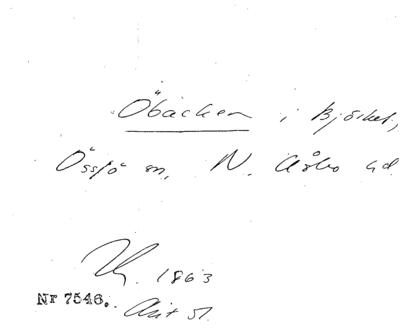 Öbacken i Björket,
Össjö sn, N. Åsbo hd
1863
Nr 7546. Akt 51.